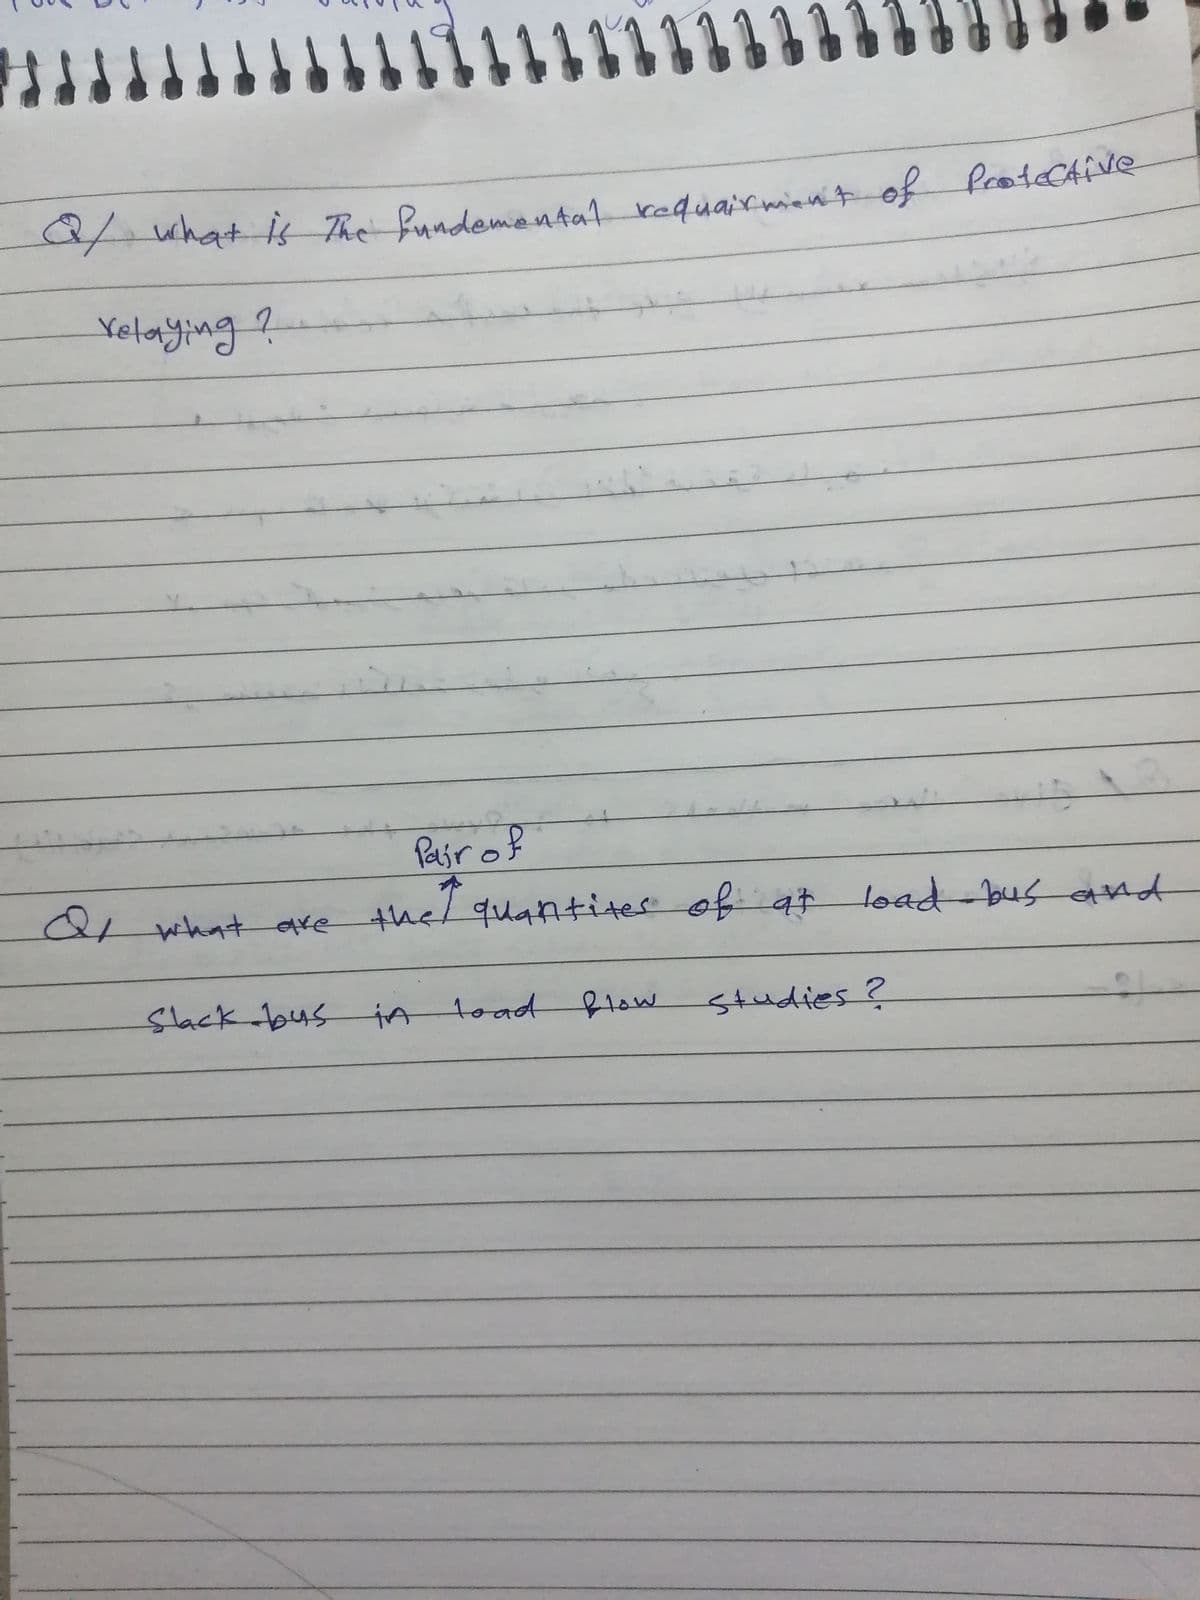 Q/ what is The fundemental requairment of Protective
relaying ?
Pair of
Q/ what are the quantites of at load-bus and
Slack-bus in load flow studies ?